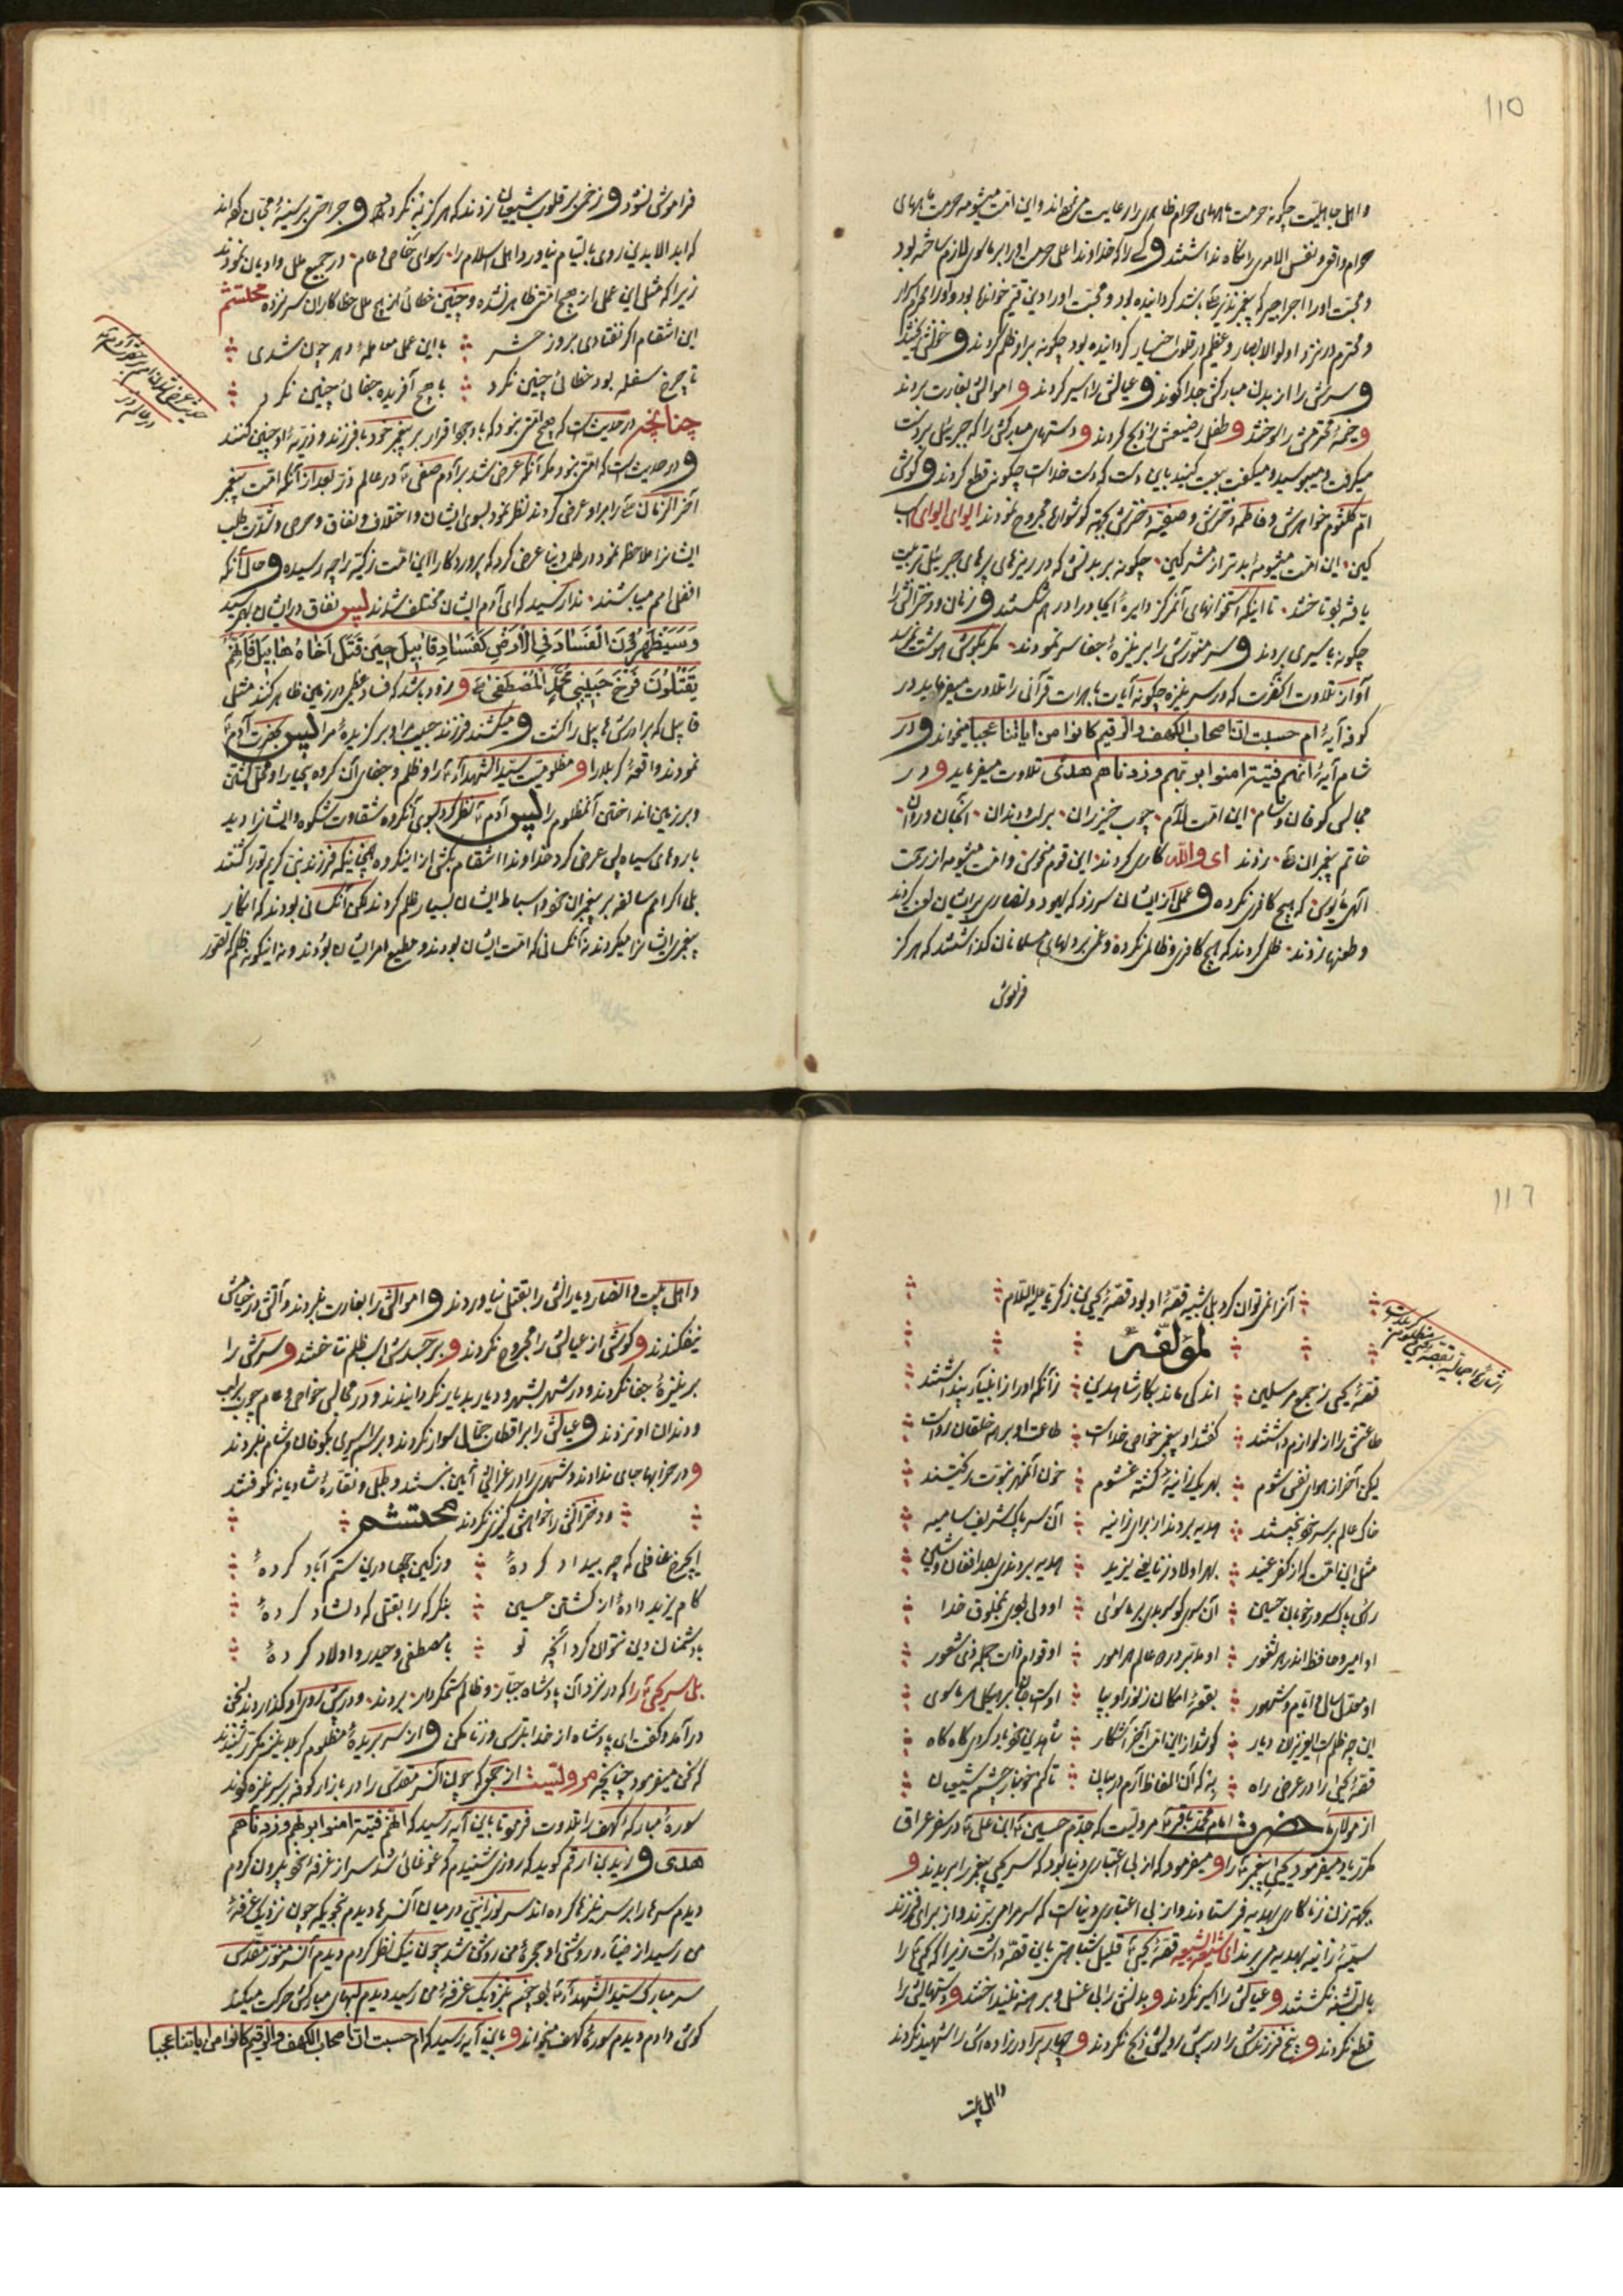 110
و اهل جاهلیت چگونه حرمت ماههای حرام ظاهری را رعایت می‌نموده‌اند و این امت میشومه حرمت ماههای
حرام واقع و نفس الامری را نگاه نداشتند و کسی را که خداوند اعلی حرمت او را بر ماسوی لازم ساخته بود
و محبت اورا اجر پیغمبر نذیر بشد گردانیده بود و محبت اورا دین قیم خوانده بود و اورا محرم اسرار
و محترم در نزد اولوالابصار و عظیم در قلوب اخیار گردانیده بود چگونه براو ظلم کردند و خونش ریختند
و سرش را از بدن مبارکش جدا کردند و عیالش را اسیر کردند و اموالش بغارت بردند
و خیمهٔ محترمش را سوختند و طفل رضیعش را ذبح کردند و دستهای مبارکش را که جبرئیل بر دست
میگرفت و میبوسید و میگفت بیعت کنید باین دست که دست خداست چگونه قطع کردند و گوش
ام کلثوم خواهرش و فاطمه دخترش و صفیه دخترش بجهة گوشواره مجروح نمودند ایوای ایوای اسب
کین این امت میشومهٔ بدتر از مشرکین چگونه بر بدنش که در ریزهای پرهای جبرئیل تربیت
یافته بود تاختند تا اینکه استخوانهای آن مرکز دایرهٔ ایجاد را درهم شکستند و زنان و دخترانش را
چگونه باسیری بردند و سر منورش را بر نیزهٔ جفا سر نمودند مگر بگوش هوشت نمیرسد
آواز تلاوت آنحضرت که در سر نیزه چگونه آیات باهرات قرآنی را تلاوت میفرماید در
کوفه آیهٔ ام حسبت ان اصحاب الکهف والرقیم کانوا من ایاتنا عجبا میخواند و در
شام آیهٔ انهم فتیة امنوا بربهم وزدناهم هدی تلاوت میفرماید و در
مجالس کوفان و شام این امت لآم چوب خیزران بر لب و دندان
خاتم پیغمبران ص زدند ای والله کاری کردند این قوم منحوس و امت میشومه از رحمت
الهی مأیوس که هیچ کافری نکرده و عملی از ایشان سرزد که یهود و نصاری بر ایشان لعن کردند
و طعنها زدند ظلمی کردند که هیچ کافری و ظالمی نکرده و غمی بر دلهای مسلمانان گذاشتند که هرگز
فراموش
فراموش نشود و زخمی بر قلوب شیعیان زدند که هرگز به نگردد و جراحتی بر سینهٔ محبان نهاده‌اند
که ابد الابدین روی بالتیام نیاورد و اهل اسلام را رسوای خاص و عام در جمیع ملل و ادیان نمودند
زیرا که مثل این عمل از هیچ امتی ظاهر نشده و چنین خطائی از هیچ ملل خطاکاران سر نزده محتشم
این انتقام اگر نفتادی بروز حشر با این عمل معاملهٔ دهر چون شدی
تا چرخ سفله بود خطائی چنین نکرد با هیچ آفریده جفائی چنین نکرد
چنانچه در حدیث است که هیچ امتی نبود که با وجود اقرار بر پیغمبر خود با فرزند و ذریهٔ او چنین کنند
و در حدیث است که امتی نبود مگر آنکه عرض شد بر آدم صفی ع در عالم ذر بعد از آنکه امت پیغمبر
آخر الزمان ص را بر او عرض کردند نظر نمود بسوی ایشان و اختلاف و نفاق و حرص و شدت طلب
ایشانرا ملاحظه نمود در طلب دنیا عرض کرد که پروردگارا این امت زکیه را چه رسیده و حال آنکه
افضل امم میباشند ندا رسید که ای آدم ایشان مختلف شدند پس نفاق در ایشان بهم رسید
وَسَیُظْهِرُونَ الْفَسَادَ فِی الْأَرْضِ کَفَسَادِ قَابِیلَ حِینَ قَتَلَ أَخَاهُ هَابِیلَ فَإِنَّهُمْ
یَقْتُلُونَ فَرْخَ حَبِیبِی مُحَمَّدٍ الْمُصْطَفَی ص و زود باشد که فساد عظیمی در زمین ظاهر کنند مثل
قابیل که برادرش هابیل را کشت و میکشند فرزند حبیب و برگزیدهٔ مرا پس بحضرت آدم
نمودند واقعهٔ کربلا را و مظلومیت سید الشهدا ع را و ظلم و جفای آن گروه بیحیا را و محل کشتن
و بر زمین انداختن آنمظلوم را پس آدم ع نظر کرد بسوی آنگروه شقاوت شکوه و ایشانرا دید
با روهای سیاه پس عرض کرد خداوندا انتقام بکش از اینگروه همچنانیکه فرزند نبی کریم تو را کشتند
بلی اگر امم سالفه بر پیغمبران خود و اسباط ایشان بسیار ظلم کردند لکن آنکسانی بودند که انکار
پیغمبری ایشانرا میکردند نه آنکسانی که امت ایشان بودند و مطیع امر ایشان بودند و نه اینگونه ظلم که تصور
حدیث عرض شدن امم بر حضرت آدم ع
در عالم ذر
116
آنرا نمی توان کرد بلی شبیه قصهٔ او بود قصهٔ یحیی بن زکریا علیه السلام
لمؤلفه
قصهٔ یحیی ز جمع مرسلین اندکی ماند بکار شاه دین زآنکه اورا از انبیا پنداشتند
طاعتش را از لوازم داشتند گفتند او پیغمبر خواص خداست طاعت او بر همه خلقان رواست
لیکن آخر از هوای نفس شوم بهر یک زانیهٔ گشته غشوم خون آنمهر نبوت ریختند
خاک عالم بر سر خود بیختند هدیه بردند از برای زانیه آن سر پاک شریف سامیه
مثل این امت که از کفر عنید بهر اولاد زنا یعنی یزید هدیه بردندی بصد افغان و شین
رأس پاک سرور خوبان حسین آن سری کو سر بدی بر ماسوی او ولی بودی بمخلوق خدا
او امیر و حافظ اندر هر ثغور او مدبر در همه عالم هر امور او قوام ذات جمله ذی شعور
او محول سال و ایام و شهور بقعهٔ امکان ز نور او بپا اوست جان بر هیکل هر ماسوی
این چه ظلمست ایعزیزان دیار کو شد از این امت آخر آشکار شاه دین خود یاد کردی گاه گاه
قصهٔ یحیی را در عرض راه به که آن الفاظ آرم در بیان تا کم خونبار چشم شیعیان
از مولای ما حضرت امام محمد باقر ع مرویست که جدم حسین بن علی ع در سفر عراق
مکرر یاد میفرمود یحیی پیغمبر ع را و میفرمود که از بی اعتباری دنیا بود که سر یحیی پیغمبر را بریدند و
بجهة زن زناکاری هدیه فرستادند و از بی اعتباری دنیاست که سر مرا می برند و از برای فرزند
سمیهٔ زانیه بهدیه می برند ای معشر الشیعه قصهٔ یحیی ع قلیل شباهتی باین قصه داشت زیرا که یحیی ع را
با لب تشنه نکشتند و عیالش را اسیر نکردند و بدنش را بی غسل و برهنه نینداختند و دستهایش را
قطع نکردند و پنج فرزندش را در پیش رویش ذبح نکردند و چهار برادر زاده اش را شهید نکردند
و اهل بیت
اشارهٔ اجمالیه بقصهٔ یحیی
و اهل بیت و انصار و یارانش را بقتل نیاوردند و اموالش را بغارت نبردند و آتش در خیامش
نیفکندند و گوشی از عیالش را مجروح نکردند و بر جسدش اسب ظلم نتاختند و سرش را
بر نیزهٔ جفا نکردند و در شهر بشهر و دیار بدیار نگردانیدند و در مجالس خواص و عام چوب بر لب
و دندان او نزدند و عیالش را بر اقطاب جمال سوار نکردند و برسم اسیری بکوفان و شام نبردند
و در خرابها جای ندادند و شهری را در عزایش آیین نبستند و طبل و نقارهٔ شادیانه نکوفتند
و دخترانش را خواهش کنیزی نکردند محتشم
ایچرخ غافلی که چه بیداد کردهٔ وز کین چها درین ستم آباد کردهٔ
کام یزید دادهٔ از کشتن حسین بنگر که را بقتل که دلشاد کردهٔ
با دشمنان دین نتوان کرد آنچه تو با مصطفی و حیدر و اولاد کردهٔ
بلی سر یحیی ع را که در نزد آن پادشاه جبار و ظالم ستمکردار بردند و در پیش روی او گذاردند بسخن
در آمد و گفت ای پادشاه از خدا بترس و زنا مکن و از سر بریدهٔ مظلوم کربلا نیز مکرر شنیدند
که سخن میفرمود چنانچه مرویست از که چون آنسر مقدس را در بازار کوفه بر سر نیزه کردند
سورهٔ مبارکه کهف را تلاوت فرمود تا باین آیه رسید که انهم فتیة امنوا بربهم وزدناهم
هدی و زید بن ارقم گوید که روزی شنیدم که غوغائی شد سر از غرفهٔ خود بیرون کردم
دیدم سرها را بر سر نیزها کرده اند سر نورانیتی در میان آنسرها دیدم بخوبی که چون نزدیک غرفهٔ
من رسید از ضیاء و روشنی او حجرهٔ من روشن شد چون نیک نظر کردم دیدم آنسر منور مقدس
سر مبارک سید الشهدا ع بود چون بنزدیک غرفهٔ من رسید دیدم لبهای مبارکش حرکت میکند
گوش دادم دیدم سورهٔ کهف میخواند و باین آیه رسید که ام حسبت ان اصحاب الکهف والرقیم کانوا من ایاتنا عجبا